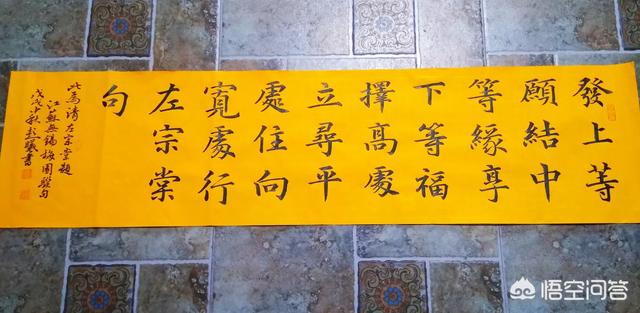 發上等
願結中
等緣享
下等福
擇高處
立尋平
處住向
寬處行
左宗棠
句
此為清左宗棠題
江蘇無錫梅園聯句
戊戌書
悟空问答